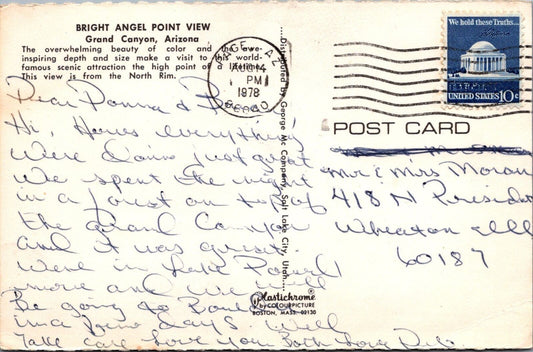 BRIGHT ANGEL POINT VIEW
Grand Canyon, Arizona
The overwhelming beauty of color and the awe-
inspiring depth and size make a visit to this world-
famous scenic attraction the high point of a lifetime.
This view is from the North Rim.
PAGE, AZ
AUG 14
PM
1978
86040
We hold these Truths...
UNITED STATES 10c
POST CARD
Dear Donna &
Hi, Hows everything
Were doing just great
We spent the night
in a forest on top of
the Grand Canyon
and it was great.
Were in Lake Powell
now and we will
be going to
in a few days. Well
Take care Love you Both Love
Distributed by George Mc Company, Salt Lake City, Utah
Mr & Mrs Moran
418 N President
Wheaton Ill
60187
Plastichrome
by COLOURPICTURE
BOSTON, MASS. 02130